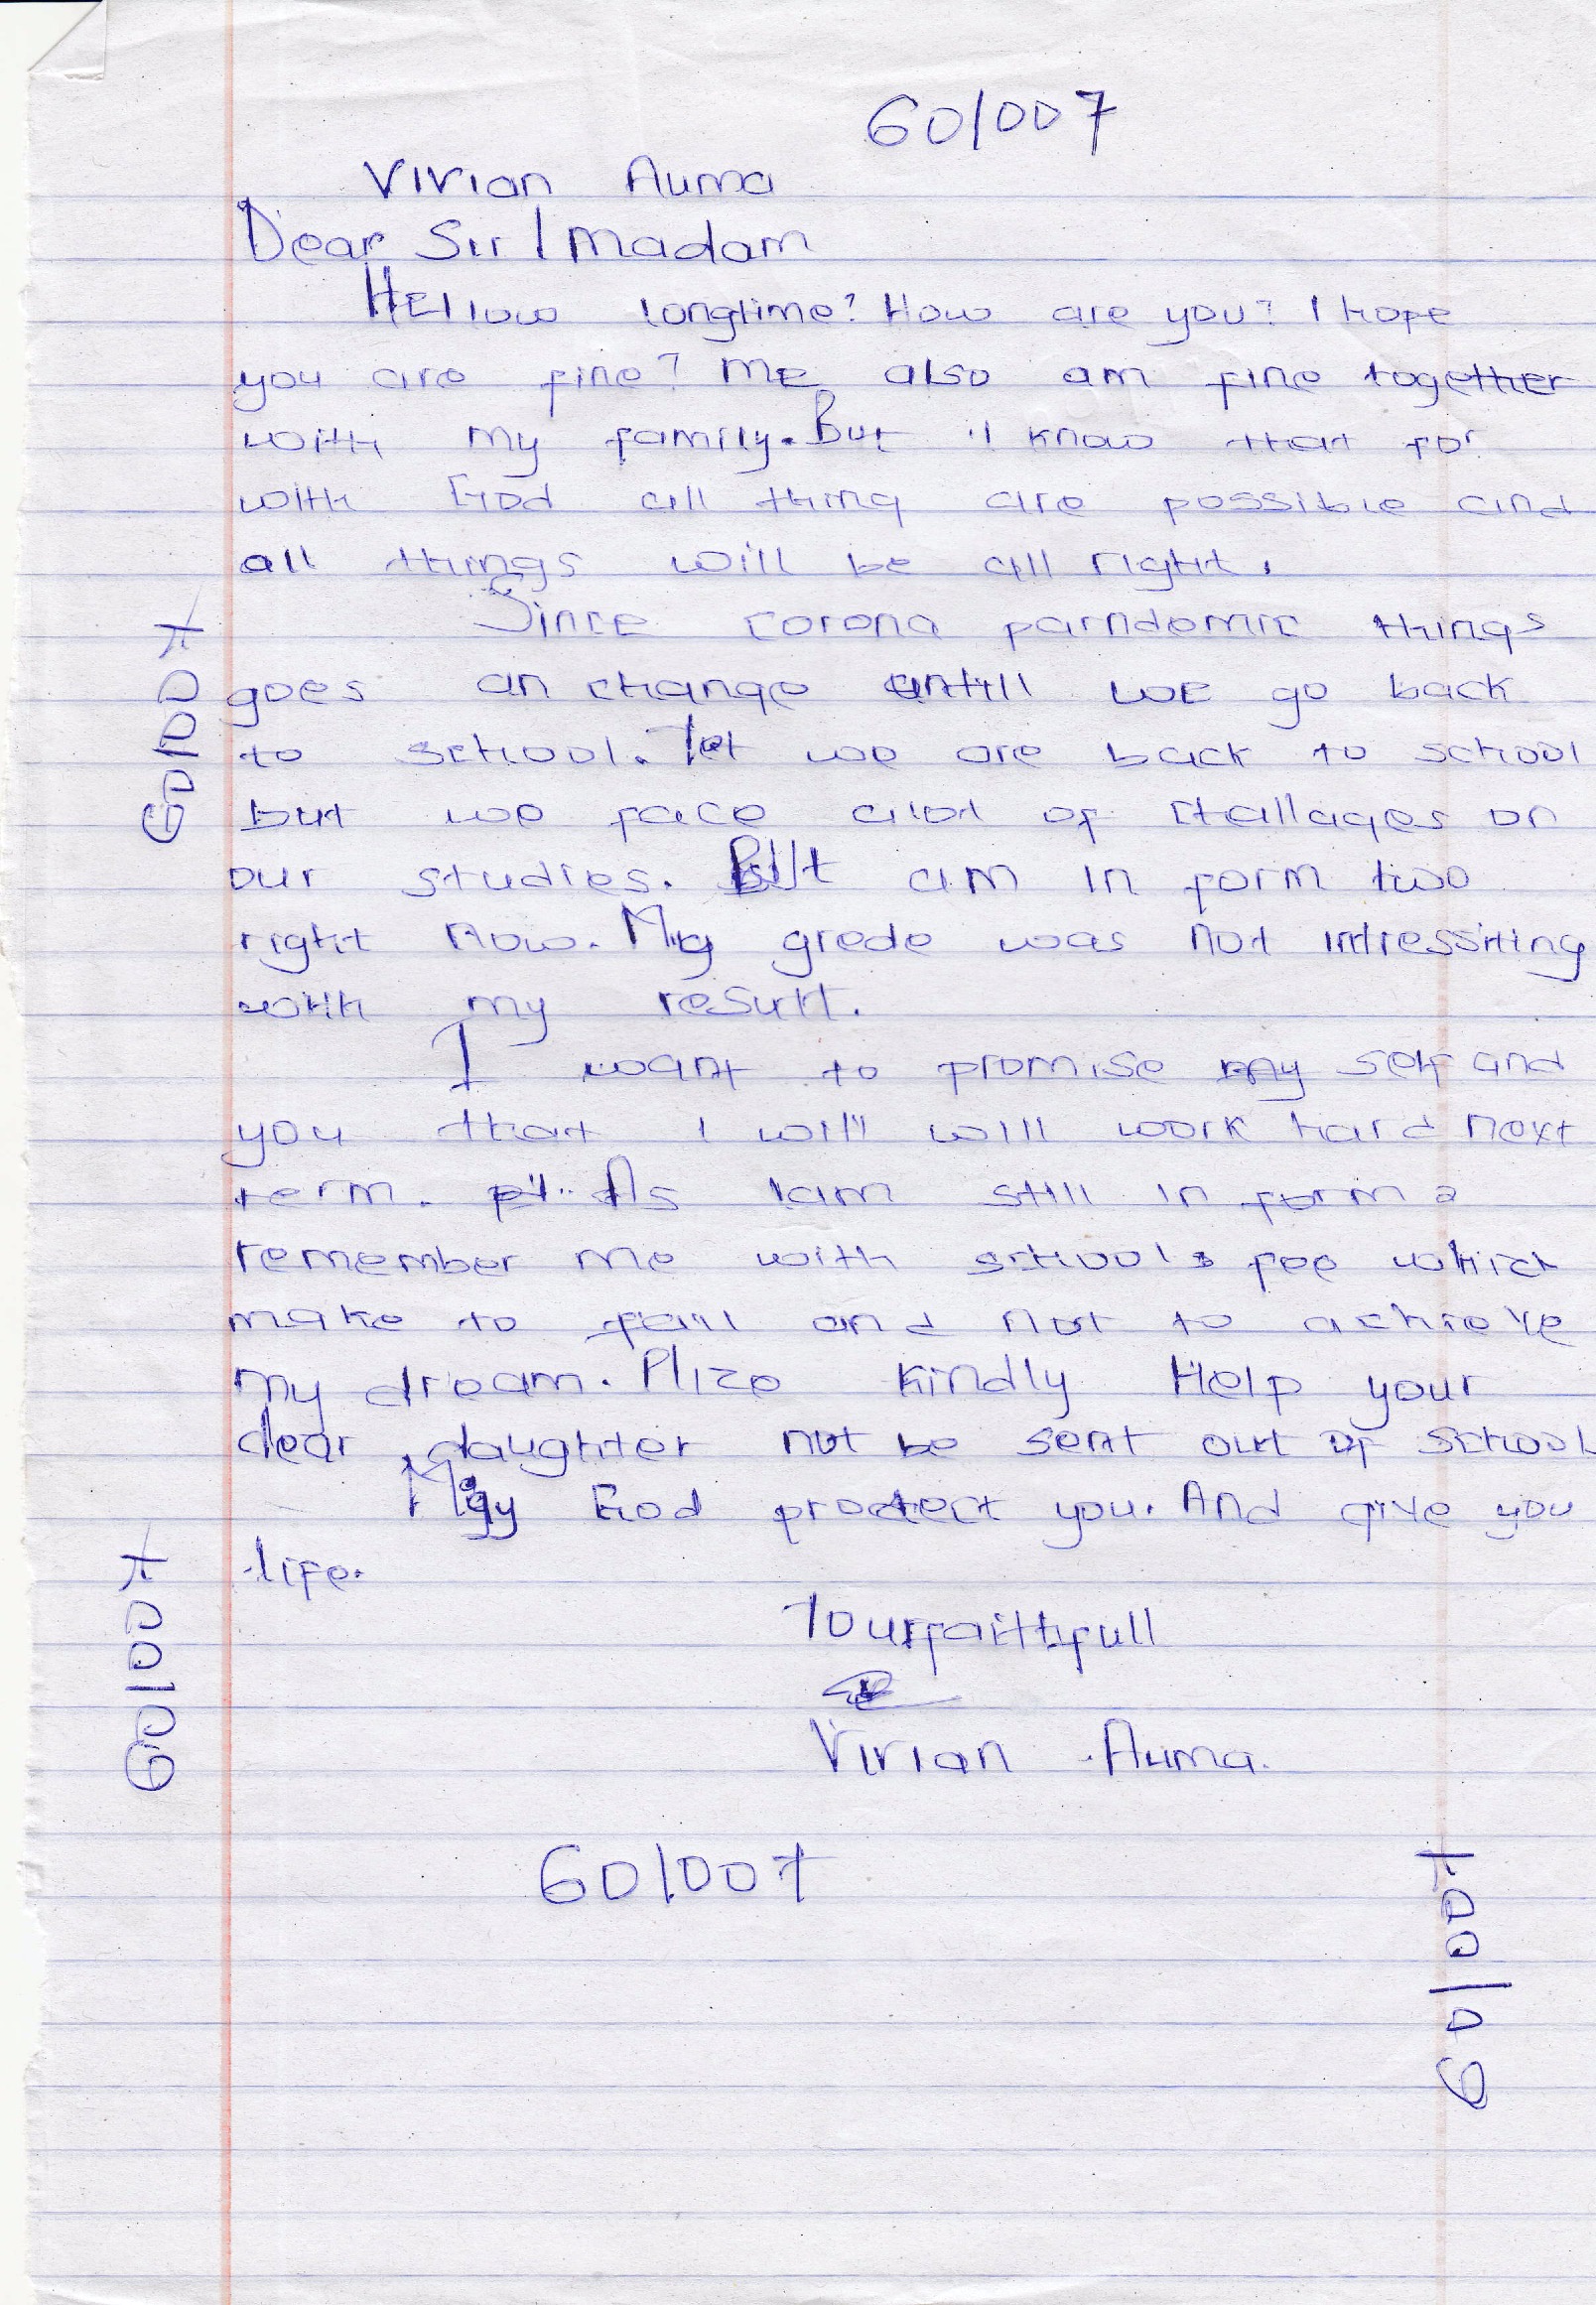 60/007
Vivian Auma
Dear Sir/madam
Hellow longtime? How are you? I hope
you are fine? Me also am fine together
with my family. But I know that for
with God all thing are possible and
all things will be all right.
Since corona parndomic things
goes an change untill we go back
to school. Yet we are back to school
but we face alot of challages on
our studies. But am in form two
right now. My grede was not intressiting
with my result.
I want to promise my self and
you that I will will work hard next
term. As Iam still in form 2
remember me with schools fee which
make to fail and not to achieve
my dream. Plize kindly Help your
dear daughter not be sent out of school
May God protect you. And give you
life.
Yourfaithfull
Vivian Auma.
60/007
60/007
60/007
60/007